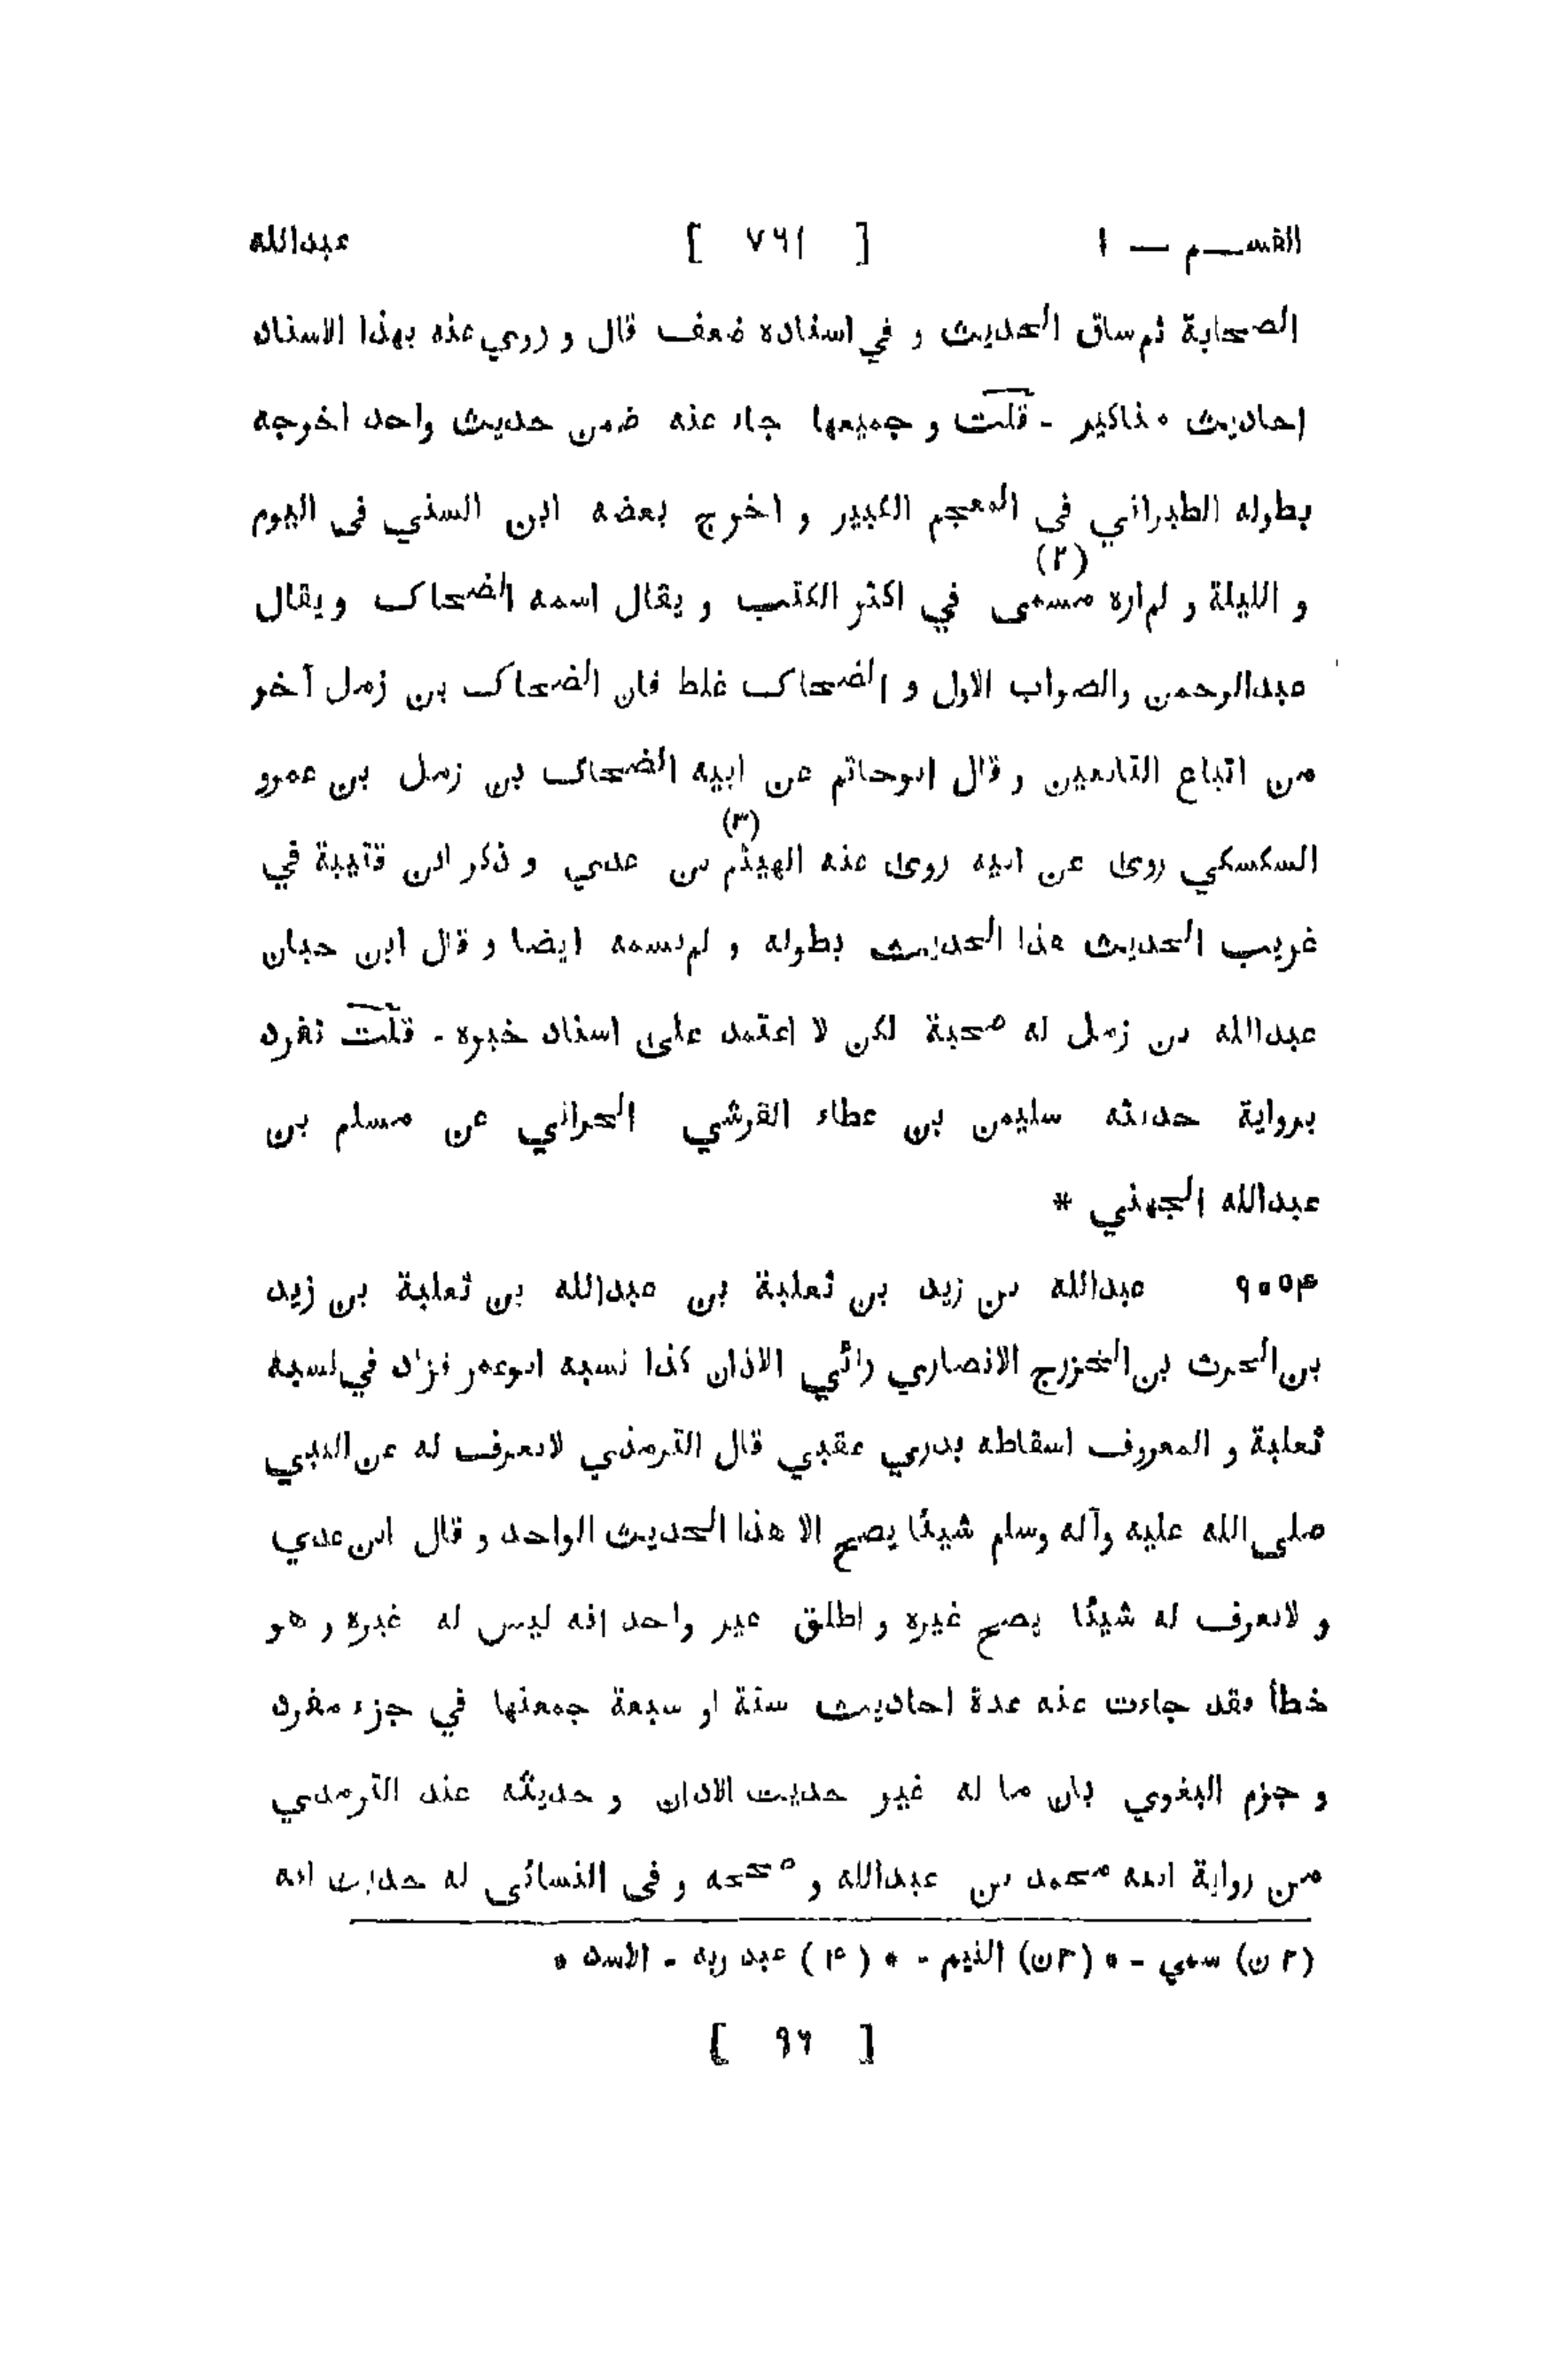 القســم — ١ [ ٧٦١ ] عبدالله
الصحابة ثم ساق الحديث و في اسناده ضعف قال و روي عنه بهذا الاسناد
احاديث مناكير - قلت و جميعها جاء عنه ضمن حديث واحد اخرجه
بطوله الطبراني في المعجم الكبير و اخرج بعضه ابن السني فى اليوم
و الليلة و لم اره مسمى (٢) في اكثر الكتب و يقال اسمه الضحاك و يقال
عبدالرحمن والصواب الاول و الضحاك غلط فان الضحاك بن زمل آخر
من اتباع التابعين و قال ابوحاتم عن ابيه الضحاك بن زمل بن عمرو
السكسكي روى عن ابيه روى عنه الهيثم (٣) بن عدي و ذكر ابن قتيبة في
غريب الحديث هذا الحديث بطوله و لم يسمه ايضا و قال ابن حبان
عبدالله بن زمل له صحبة لكن لا اعتمد على اسناد خبره - قلت تفرد
برواية حديثه سليمن بن عطاء القرشي الحراني عن مسلم بن
عبدالله الجهني *
٩٠٥٤ عبدالله بن زيد بن ثعلبة بن عبدالله بن ثعلبة بن زيد
بن الحرث بن الخزرج الانصاري رائي الاذان كذا نسبه ابوعمر فزاد في نسبه
ثعلبة و المعروف اسقاطه بدري عقبي قال الترمذي لانعرف له عن النبي
صلى الله عليه وآله وسلم شيئا يصح الا هذا الحديث الواحد و قال ابن عدي
و لانعرف له شيئا يصح غيره و اطلق غير واحد انه ليس له غيره و هو
خطأ فقد جاءت عنه عدة احاديث ستة او سبعة جمعتها في جزء مفرد
و جزم البغوي بان ما له غير حديث الاذان و حديثه عند الترمذي
من رواية ابنه محمد بن عبدالله و صححه و فى النسائى له حديث انه
(٢ ن) سمي - * (٣ ن) النيم - * (٤) عبد ربه - الاسد *
[ ٩٦ ]